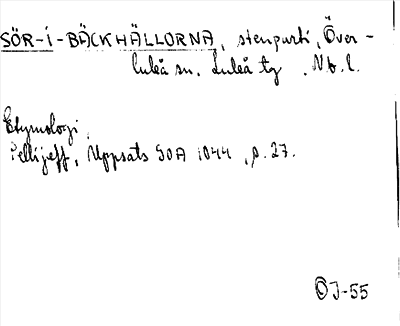 SÖR-I-BÄCKHÄLLORNA, stenparti, Över-
luleå sn. Luleå tg, Nb. l.
Etymologi.
Pellijeff, Uppsats SOA 1044, p. 27.
OJ-55